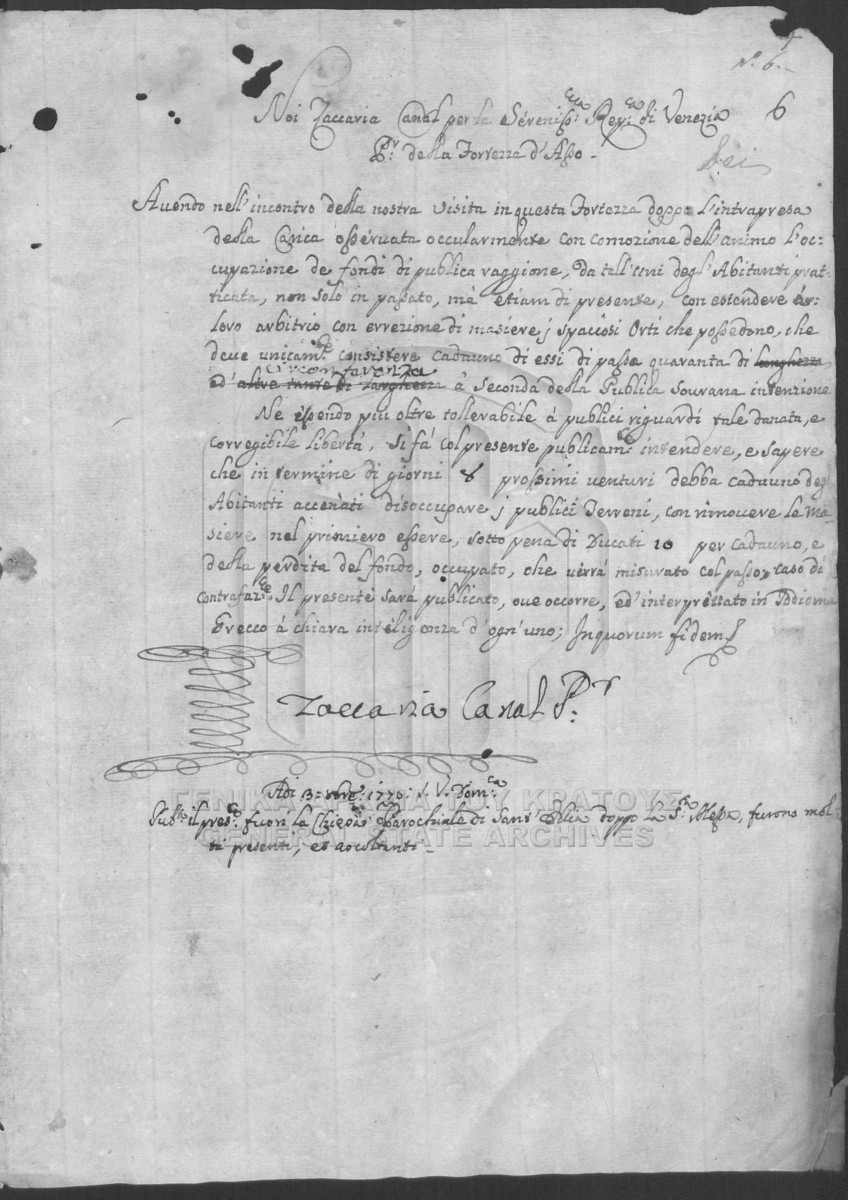 N.º 6.
6
Sei
Noi Zaccaria Canal per la Sereniss.ma Rep.ca di Venezia
P.r della Fortezza d'Asso -
Auendo nell'incontro della nostra Visita in questa Fortezza doppo l'intrapresa
della Carica osseruata occularmente con comozione dell'animo l'oc:
cupazione de fondi di publica raggione, da tall'uni degl'Abitanti prat:
ticata, non solo in passato, mà etiamdi presente, con estendere à
loro arbitrio con errezione di masiere j spaciosi Orti che possedono, che
deue unicam.te consistere cadauno di essi di passa quaranta di longhezza
circonfarenza
ed'altre tante di larghezza à Seconda della Publica Sourana intenzione
Ne essendo più oltre tollerabile à publici riguardi tale danata, e
corregibile libertà, si fà col presente publicam.te intendere, e sapere
che in termine di giorni 8 prossimi venturi debba cadauno degl
Abitanti accenati disoccupare j publici Terreni, con rimouere le Ma:
siere nel primiero essere, sotto pena di Ducati 10 per cadauno, e
della perdita del fondo, occupato, che uerrà misurato col passo, caso di
Contrafaz.ne Il presente sarà publicato, oue occorre, ed'interprettato in Idioma
Grecco à chiara inteligenza d'ogn'uno; Inquorum fidem
Zaccaria Canal P.r
Adi 3: 1770: S. V. Dom.ca
Pub.to il pres.te fuori la Chiesa Parochiale di Sant' Elia doppo la S.ta Messa, furono mol:
ti presenti, ed ascoltanti -
ΓΕΝΙΚΑ ΑΡΧΕΙΑ ΤΟΥ ΚΡΑΤΟΥΣ
GENERAL STATE ARCHIVES